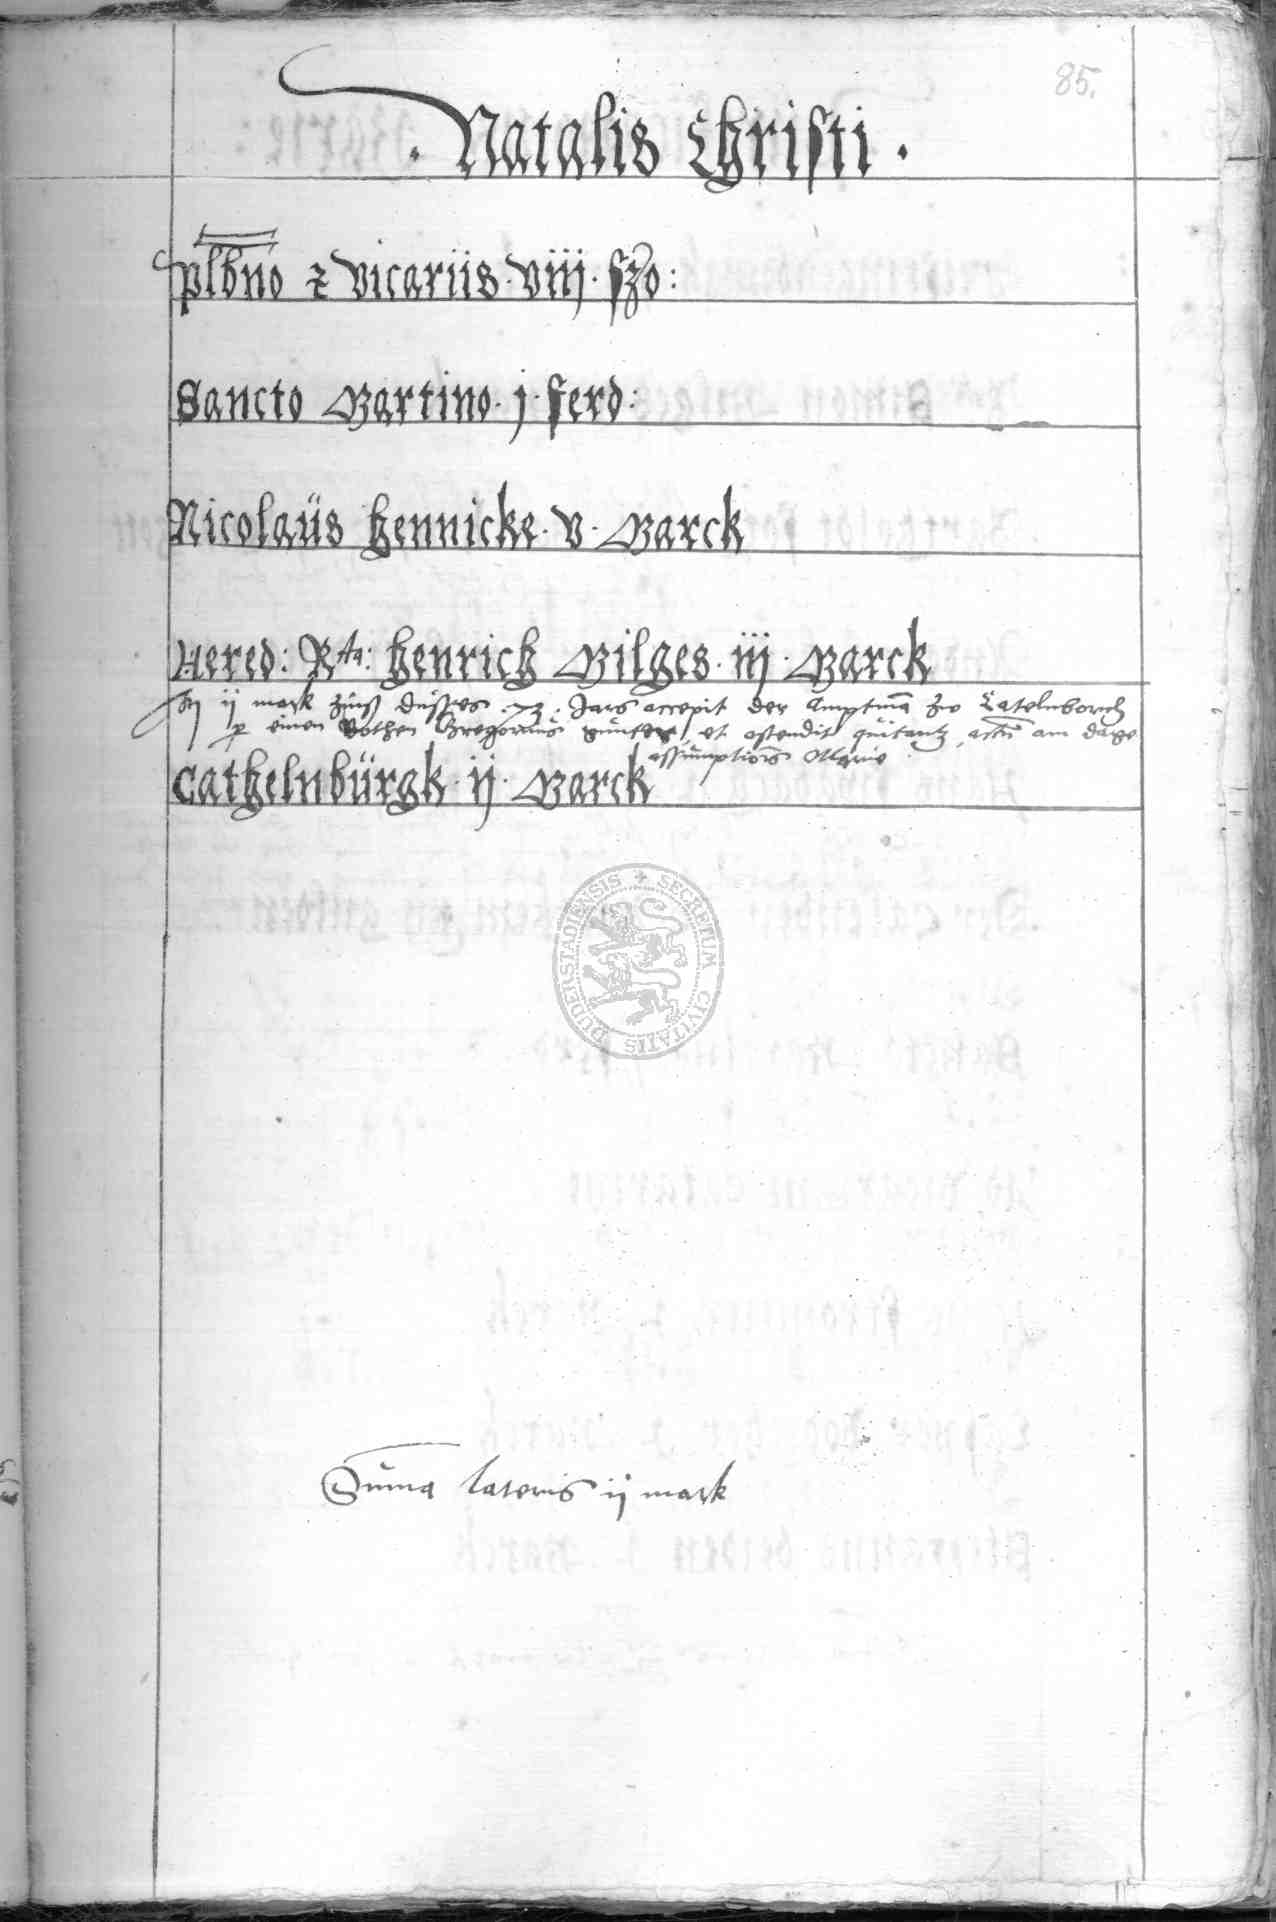 85.
. Natalis Christi .
plbno & vicariis · viij · ſzo:
Sancto Martino · j · ferd:
Nicolaüs Hennicke · v · Marck
Hered: Rta: Henrich Hilges · iij · Marck
ij mark zinß disses · 72 · Jars accepit der Amptma zw Catelnborch
einen Bothen Gregoriüs günter, et ostendit quitantz, actu am dage
assumptionis Marie
Cathelnbürgk · ij · Marck
SECRETUM CIVITATIS DUDERSTADIENSIS
Suma lateris ij mark